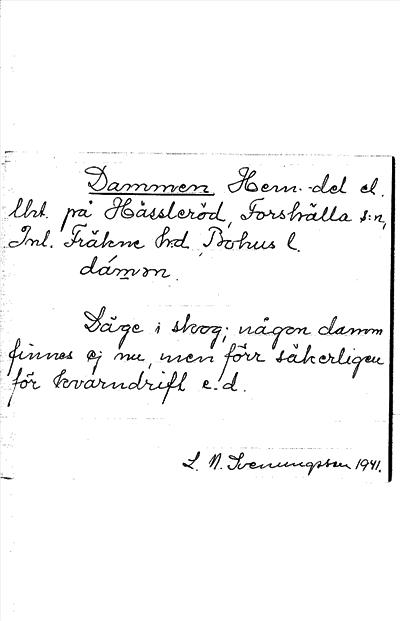 Dammen Hem.-del el.
lht. på Hässleröd, Forshälla s:n,
Inl. Fräkne hd, Bohus l.
dámən.
Läge i skog; någon damm
finnes ej nu, men förr säkerligen
för kvarndrift e.d.
L. N. Svenungsson 1941.